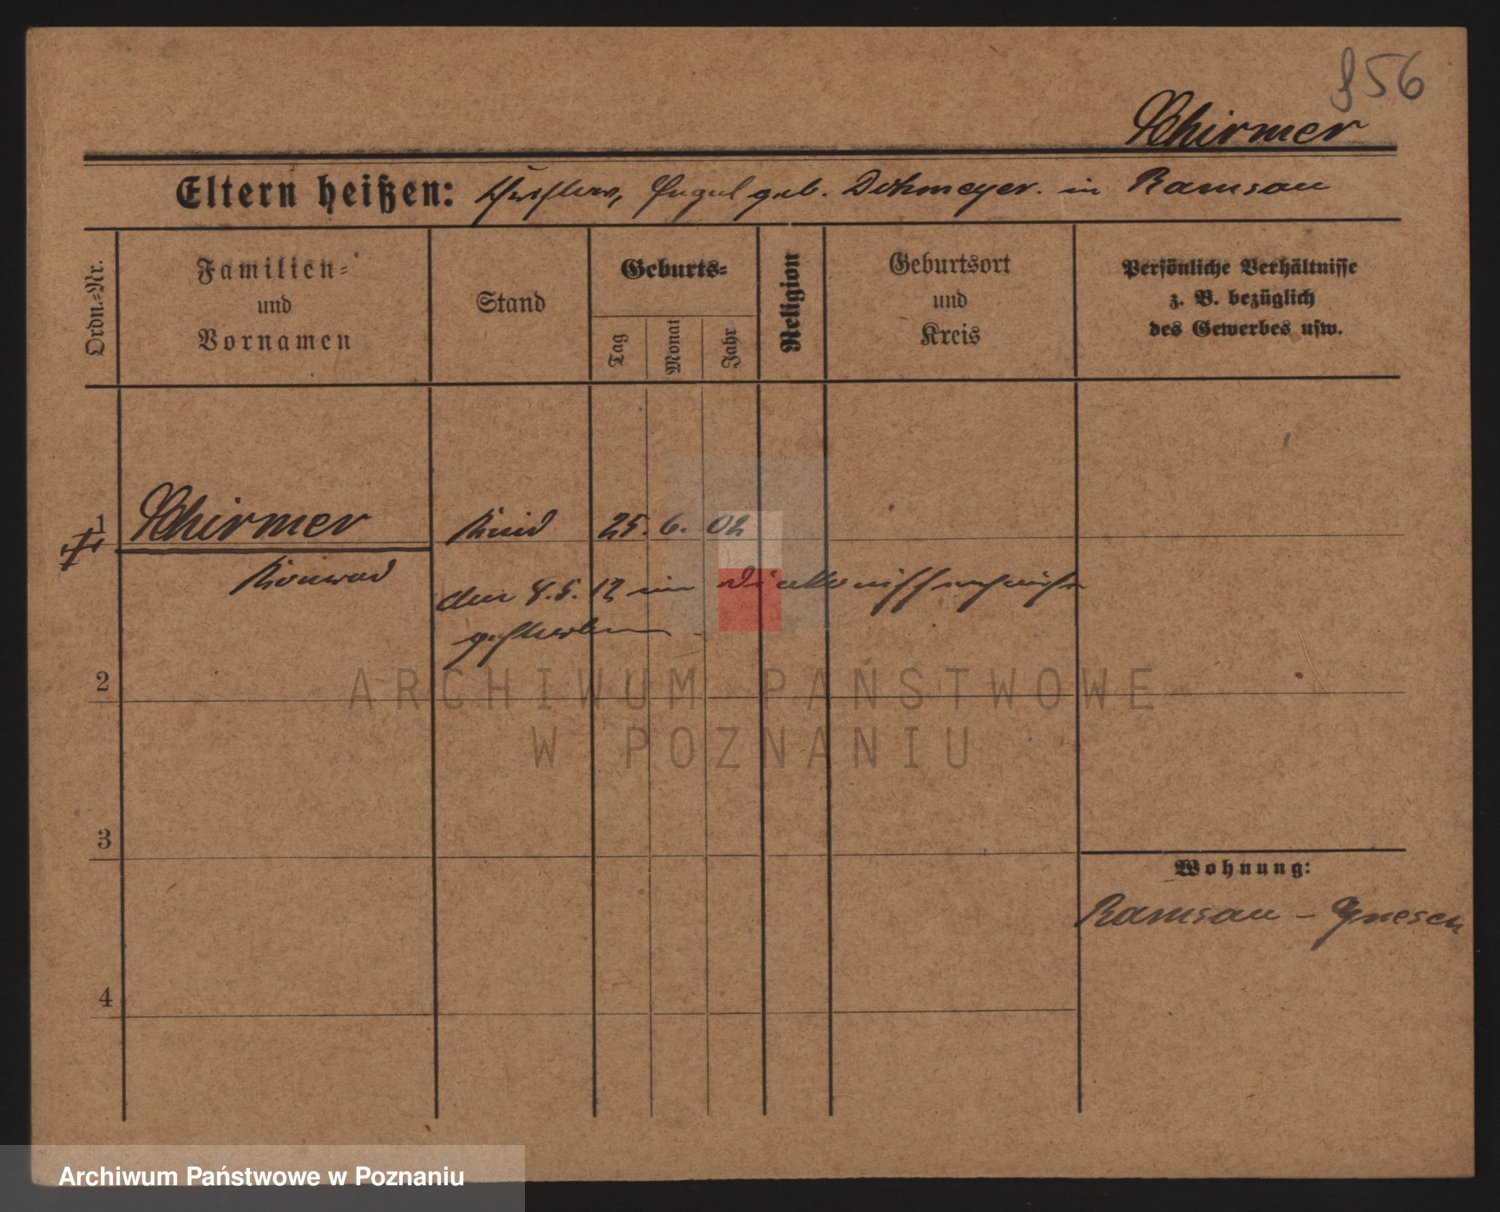 956
Schirmer
Eltern heißen: Gustav, geb. Dehmeyer. in Ramsau
Ordn.-Nr.
Familien-
und
Vornamen
Stand
Geburts-
Tag
Monat
Jahr
Religion
Geburtsort
und
Kreis
Persönliche Verhältnisse
z. B. bezüglich
des Gewerbes usw.
1 Schirmer Kind 25. 6. 02
Konrad
den 4.5.12 im Diakonissenhause
gestorben.
2
ARCHIWUM PAŃSTWOWE
W POZNANIU
3
Wohnung:
Ramsau - Gnesen
4
Archiwum Państwowe w Poznaniu